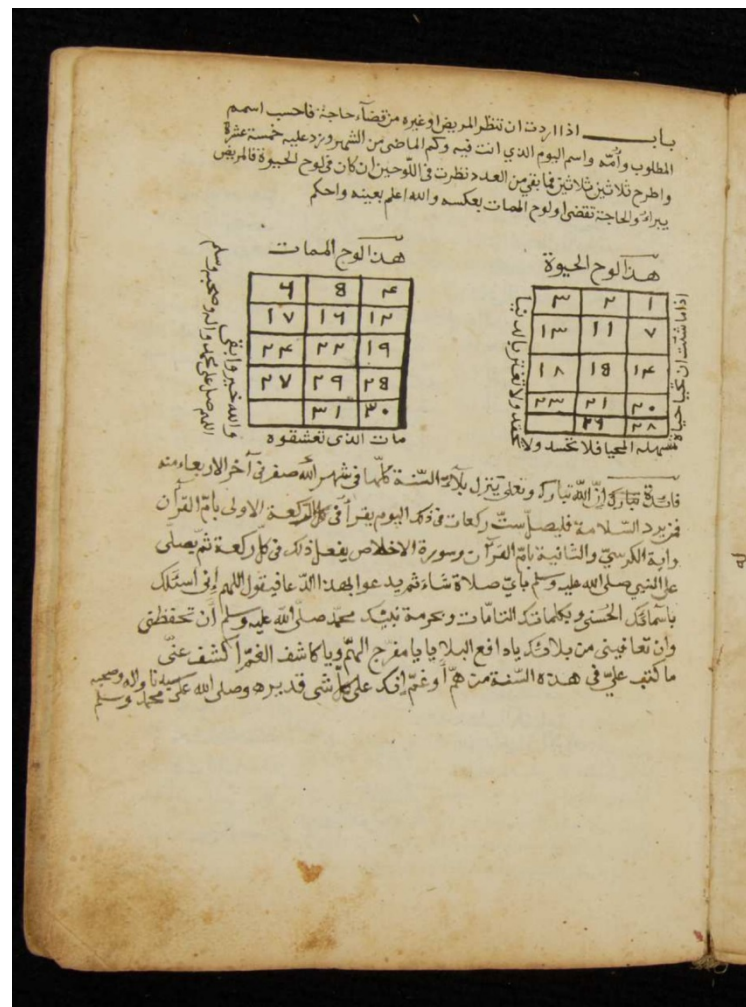 باب اذا اردت ان تنظر المريض او غيره من قضآء حاجة فاحسب اسم
المطلوب وأمّه واسم اليوم الذي انت فيه وكم الماضى من الشهر وزد عليه خمسة عشرة
واطرح ثلاثين ثلاثين فما بقي من العدد نظرت في اللوحين ان كان في لوح الحيوة فالمريض
يبراء والحاجة تقضى او لوح الممات بعكسه والله اعلم بعينه واحكم
هذا لوح الحيوة
١ ٢ ٣
٧ 11 ١٣
١٤ 18 ١٨
٢٠ ٢١ ٢٣
٢٨ ٢٦
اذا ما شئت ان تحيا حياة
سهله المحيا فلا تحسد ولا
تحقد ولا تغتر بالدنيا
هذا لوح الممات
٤ 8 ٦
١٢ ١٦ ١٧
١٩ ٢٢ ٢٤
٢8 ٢٩ ٢٧
٣٠ ٣١
مات الذى تعشقوه
والله خير وابقى
اللهم صل على محمد واله وصحبه وسلم
فائدة مباركة انّ الله تبارك وتعلى ينزل بلآء السّنة كلّها في شهر الله صفر في آخر الاربعاء منه
فمن يرد السّلامة فليصلّ ستّ ركعات في ذلك اليوم يقرأ في كل الركعة الاولى بامّ القرآن
واية الكرسيّ والثانية بامّ القرآن وسورة الاخلاص يفعل ذلك في كلّ ركعة ثمّ يصلى
على النبي صلى الله عليه وسلم بايّ صلاة شاء ثم يدعوا بهذا الدّعا فيقول اللهم إنى اسئلك
باسمآئك الحسنى وبكلماتك التامّات وبحرمة نبيّك محمّد صلّى الله عليه وسلم أن تحفظنى
وان تعافينى من بلائك يا دافع البلايا يا مفرّج الهمّ ويا كاشف الغمّ اكشف عنّى
ما كتب عليّ في هذه السّنة من همّ أو غمّ انك على كلّ شى قدير وصلى الله على سيدنا محمد واله وصحبه وسلم